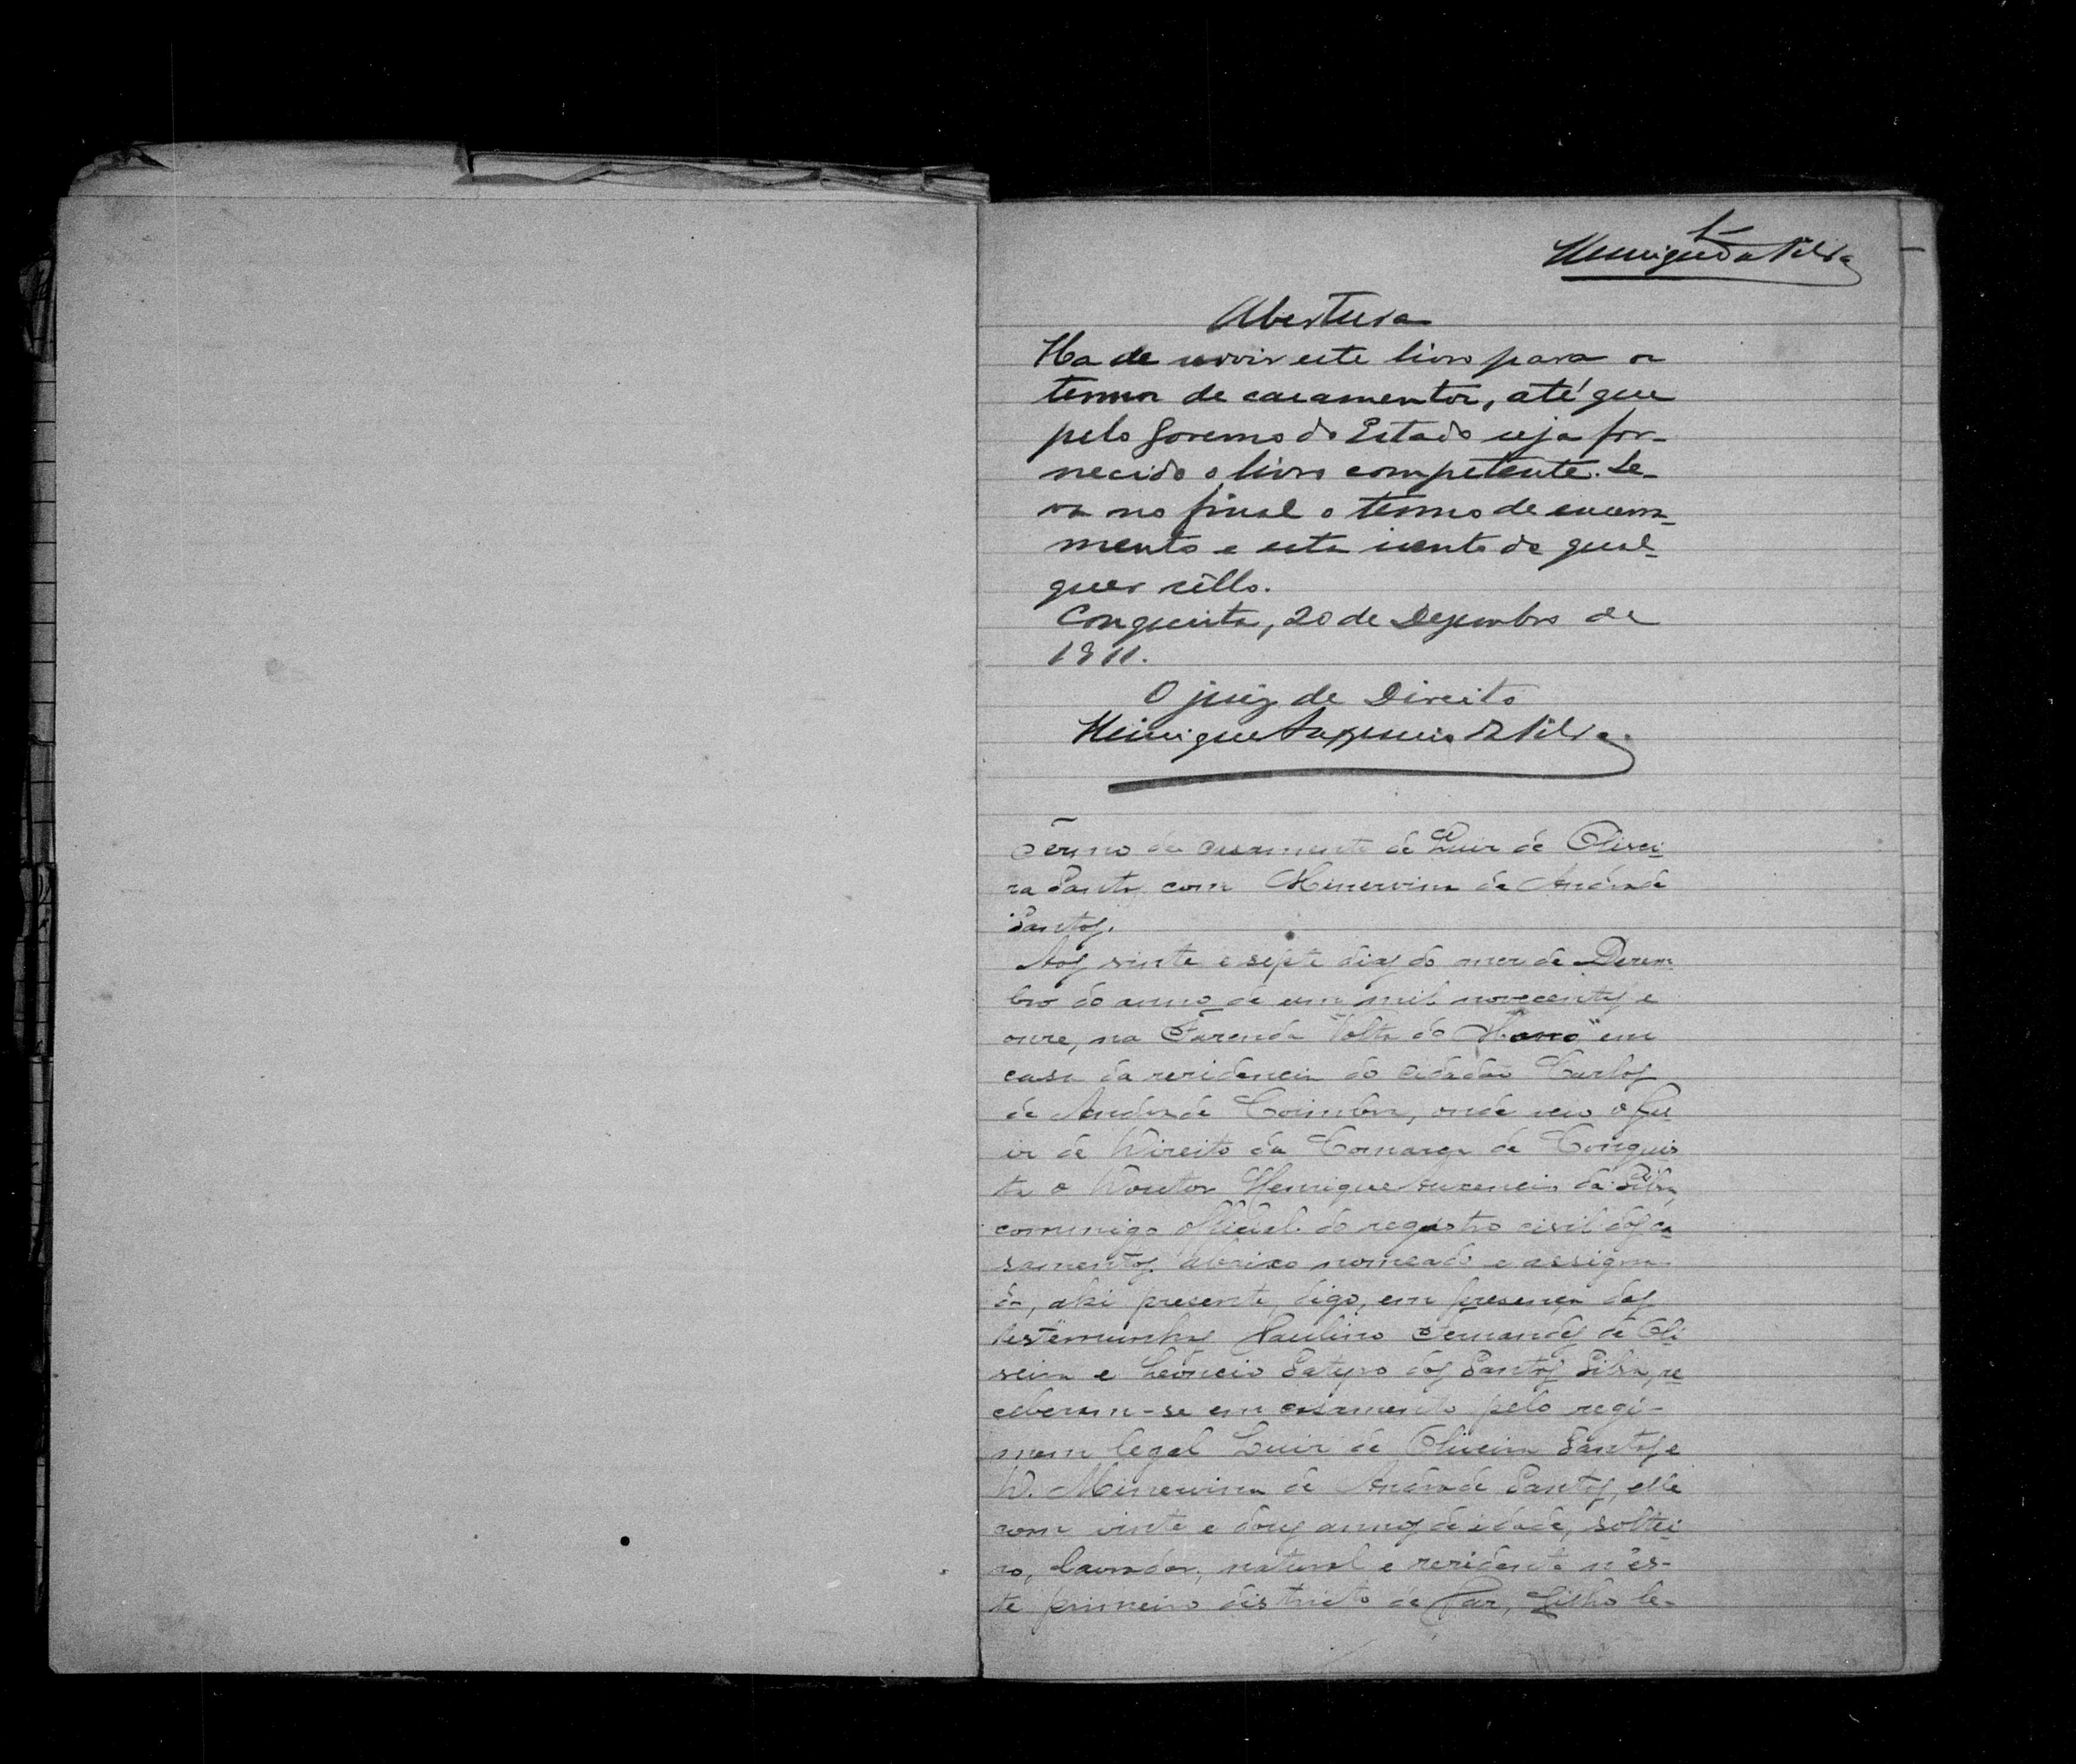 1
Henrique da Silva
Abertura
Ha de servir este livro para os
termos de casamentos, até que
pelo Governo do Estado seja for-
necido o livro competente. Le-
va no final o termo de encerra-
mento e esta isento de qual-
quer sêllo.
Conquista, 20 de Dezembro de
1911.
O juiz de Direito
Henrique da Silva.
Termo de casamento de Luiz de Olivei-
ra Santos com Minervina de Andrade
Santos.
Aos vinte e sete dias do mez de Dezem-
bro do anno de um mil novecentos e
onze, na Fazenda "Volta do Morro" em
casa da rezidencia do cidadão Carlos
de Andrade Coimbra, onde veio o Ju-
iz de Direito da Comarca de Conquis-
ta o Doutor Henrique da Silva,
commigo official do registro civil dos ca-
samentos abaixo nomeado e assigna-
do, ahi presente, digo, em presença das
testemunhas Paulino Fernandes de Oli-
veira e Leoncio Satyro dos Santos Silva, re-
ceberam-se em casamento pelo regi-
mem legal Luiz de Oliveira Santos e
D. Minervina de Andrade Santos, elle
com vinte e dous annos de idade, soltei-
ro, lavrador, natural e rezidente n'es-
te primeiro districto de Paz, filho le-